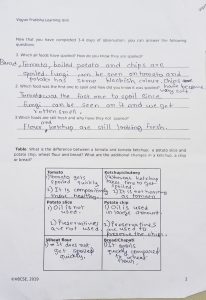 Vigyan Pratibha Learning Unit
Now that you have completed 3-4 days of observation, you can answer the following
questions:
1. Which all foods have spoiled? How do you know they are spoiled?
Bread, Tomato, boiled potato and chips are
spoiled. Fungi can be seen on tomato and
potato has some blackish colour. Chips have become
2. Which food was the first one to spoil and how did you know it was spoiled?
Tomato was the first one to spoil since
fungi can be seen on it and we got
rotten smell.
3. Which foods are still fresh and why have they not spoiled?
Flour and ketchup are still looking fresh.
Table. What is the difference between a tomato and tomato ketchup, a potato slice and
potato chip, wheat flour and bread? What are the additional changes in a ketchup, a chip
or bread?
Tomato
Tomato gets
spoiled quickly.
2) It is comparatively
more healthy.
Ketchup/chutney
1) Tomato ketchup
takes time to get
spoiled.
2) It is not healthy
as tomato.
Potato slice
1) Oil is not
used.
2) Preservatives
are not used.
Potato chip
1) Oil is used
in large amount.
2) Preservatives
are used to
preserve the chips.
Wheat flour
1) It does not
get spoiled
quickly.
Bread/Chapati
1) It spoils
quickly compared
to wheat
flour.
©HBCSE, 2019
2